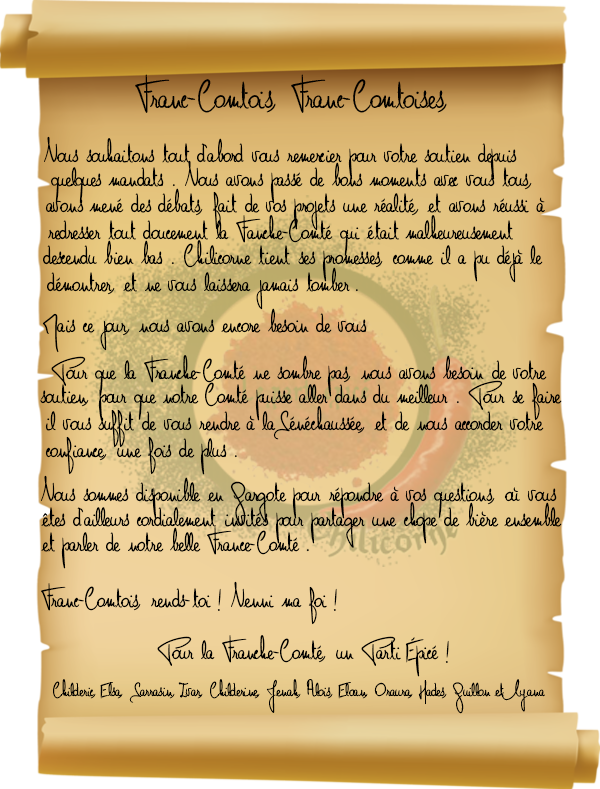 Franc-Comtois, Franc-Comtoises,
Nous souhaitons tout d'abord vous remercier pour votre soutien depuis
quelques mandats . Nous avons passé de bons moments avec vous tous,
avons mené des débats, fait de vos projets une réalité, et avons réussi à
redresser tout doucement la Fanche-Comté qui était malheureusement
descendu bien bas . Chilicorne tient ses promesses, comme il a pu déjà le
démontrer, et ne vous laissera jamais tomber .
Mais ce jour, nous avons encore besoin de vous
Pour que la Franche-Comté ne sombre pas, nous avons besoin de votre
soutien, pour que notre Comté puisse aller dans du meilleur . Pour se faire
il vous suffit de vous rendre à la Sénéchaussée, et de nous accorder votre
confiance, une fois de plus .
Nous sommes disponible en Gargote pour répondre à vos questions, où vous
êtes d'ailleurs cordialement invités pour partager une chope de bière ensemble
et parler de notre belle France-Comté .
Chilicorne
Franc-Comtois, rends-toi ! Nenni ma foi !
Pour la Franche-Comté, un Parti Épicé !
Childeric, Elsa, Sarrasin, Ivar, Childerine, Jenah, Aloïs, Eloan, Oraura, Hades, Guillon et Ayana